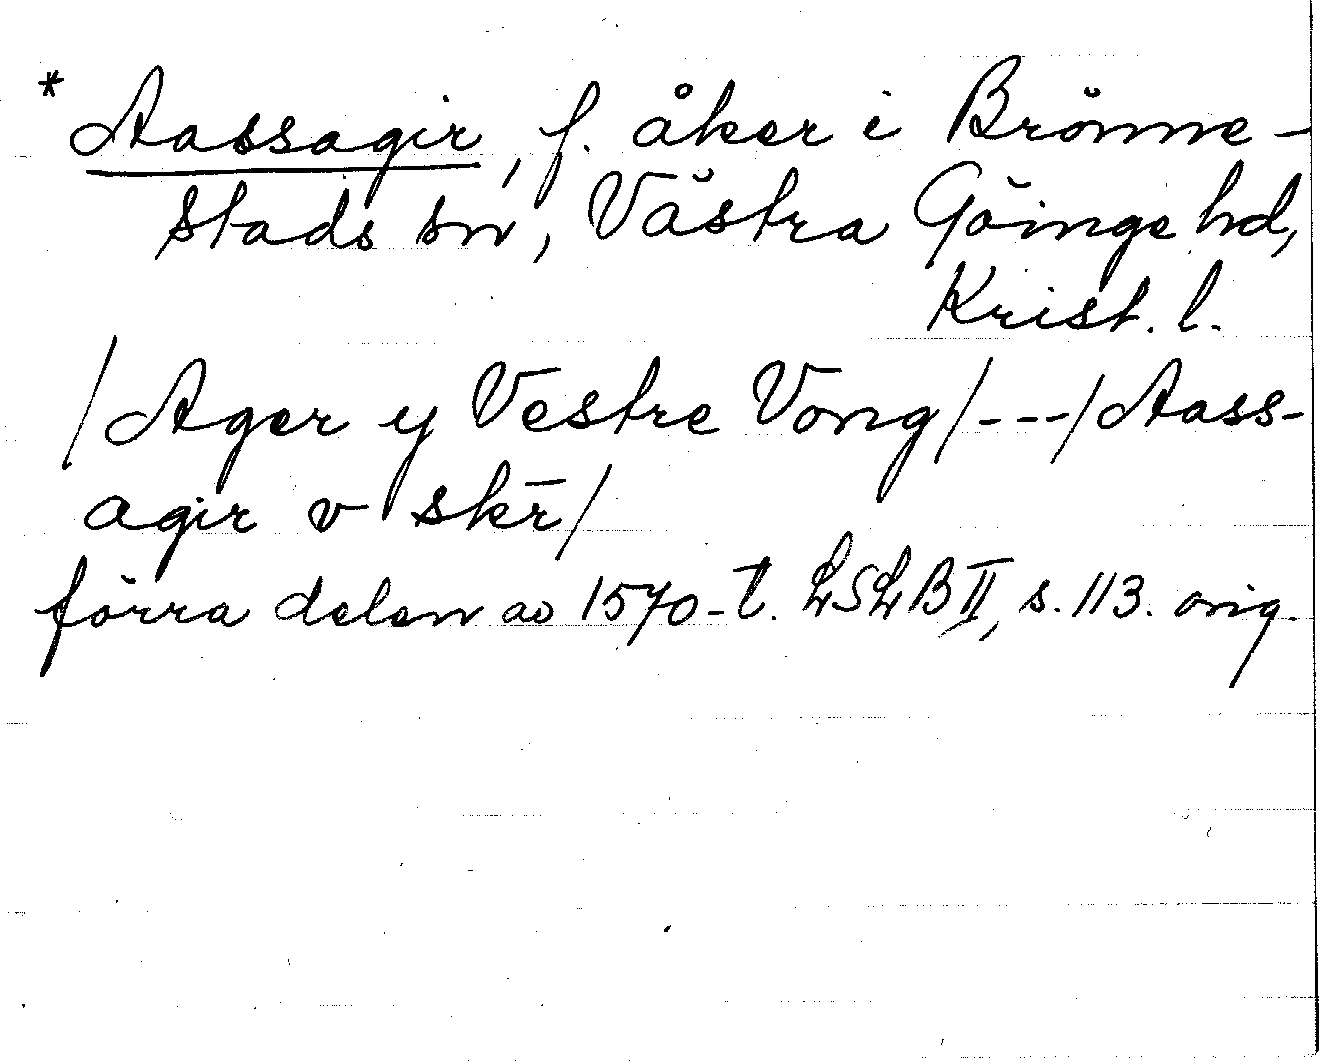 * Aassagir, f. åker i Brönne-
stads sn, Västra Göinge hd,
Krist. l.
/Ager y Vestre Vong/---/Aass-
agir v skr̄/
förra delen av 1570-t. LSLB II, s. 113. orig.